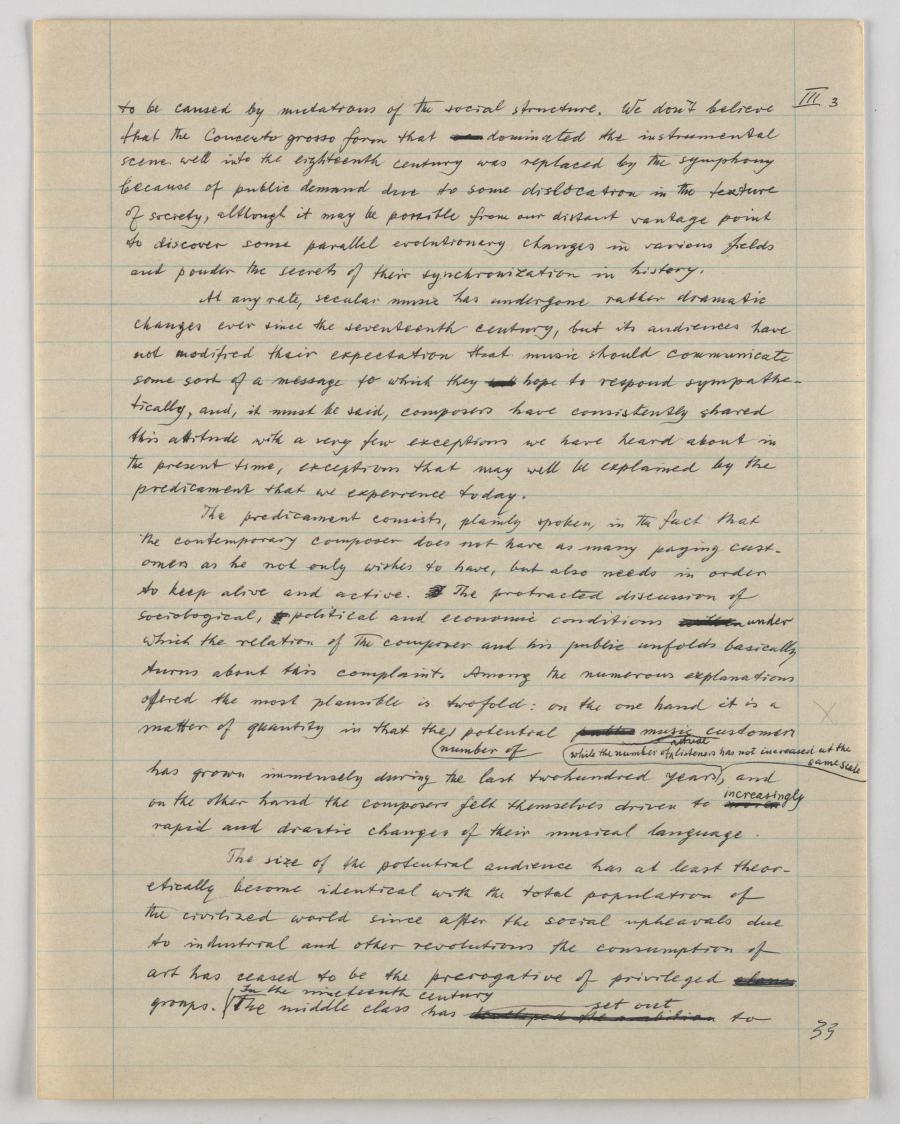 III 3
to be caused by mutations of the social structure. We don't believe
that the Concerto grosso form that dominated the instrumental
scene well into the eighteenth century was replaced by the symphony
because of public demand due to some dislocation in the texture
of society, although it may be possible from our distant vantage point
to discover some parallel evolutionary changes in various fields
and ponder the secrets of their synchronization in history.
At any rate, secular music has undergone rather dramatic
changes ever since the seventeenth century, but its audiences have
not modified their expectation that music should communicate
some sort of a message to which they hope to respond sympathe-
tically, and, it must be said, composers have consistently shared
this attitude with a very few exceptions we have heard about in
the present time, exceptions that may well be explained by the
predicament that we experience today.
The predicament consists, plainly spoken, in the fact that
the contemporary composer does not have as many paying cust-
omers as he not only wishes to have, but also needs in order
to keep alive and active. The protracted discussion of
sociological, political and economic conditions under
which the relation of the composer and his public unfolds basically
turns about this complaint. Among the numerous explanations
offered the most plausible is twofold: on the one hand it is a
matter of quantity in that the potential music customers
number of while the number of actual listeners has not increased at the
same scale
has grown immensely during the last twohundred years, and
on the other hand the composers felt themselves driven to increasingly
rapid and drastic changes of their musical language.
The size of the potential audience has at least theor-
etically become identical with the total population of
the civilized world since after the social upheavals due
to industrial and other revolutions the consumption of
art has ceased to be the prerogative of privileged
In the nineteenth century
groups. The middle class has set out to
39